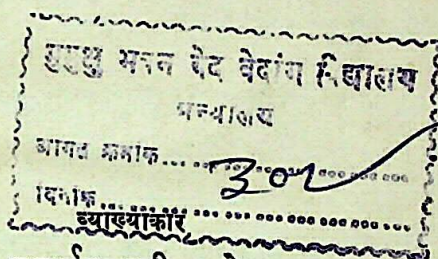 मुमुक्षु भवन वेद वेदांग विद्यालय
ग्रन्थालय
आगत क्रमांक...
दिनांक...
व्याख्याकार